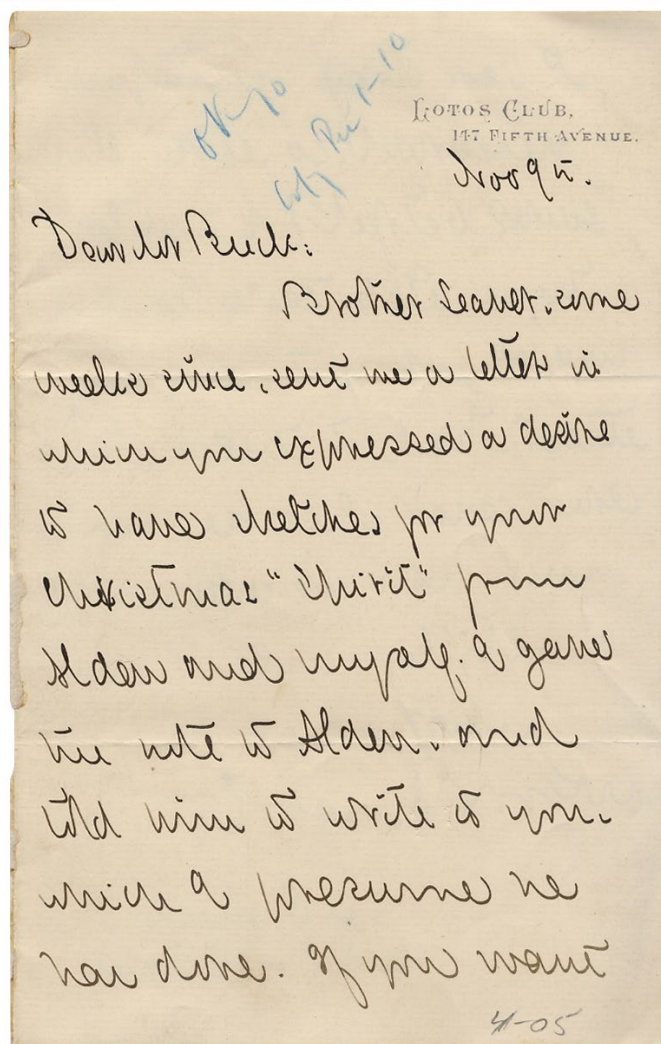 LOTOS CLUB,
147 FIFTH AVENUE.
Nov 9th.
Dear Mr Buck:
Brother Seaver, some
weeks since, sent me a letter in
which you expressed a desire
to have sketches for your
Christmas "Spirit" from
Alden and myself. I gave
the note to Alden, and
told him to write to you,
which I presume he
has done. If you want
4-05